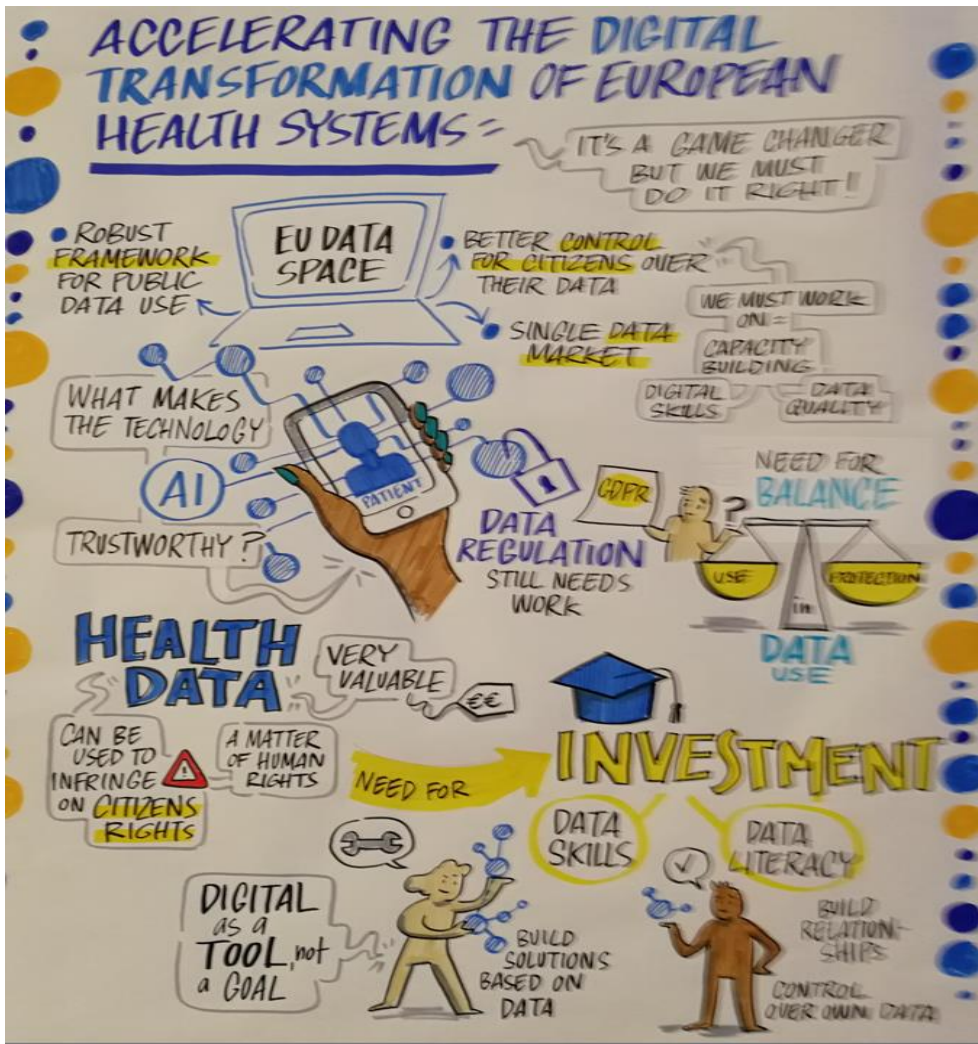 ACCELERATING THE DIGITAL
TRANSFORMATION OF EUROPEAN
HEALTH SYSTEMS =
IT'S A GAME CHANGER
BUT WE MUST
DO IT RIGHT!!
ROBUST
FRAMEWORK
FOR PUBLIC
DATA USE
EU DATA
SPACE
BETTER CONTROL
FOR CITIZENS OVER
THEIR DATA
SINGLE DATA
MARKET
WE MUST WORK
ON =
CAPACITY
BUILDING
DIGITAL
SKILLS
DATA
QUALITY
WHAT MAKES
THE TECHNOLOGY
AI
TRUSTWORTHY?
PATIENT
DATA
REGULATION
STILL NEEDS
WORK
GDPR
?
NEED FOR
BALANCE
USE
PROTECTION
in
DATA
USE
HEALTH
DATA
VERY
VALUABLE
€€
CAN BE
USED TO
INFRINGE
ON CITIZENS
RIGHTS
!
A MATTER
OF HUMAN
RIGHTS
NEED FOR
INVESTMENT
DATA
SKILLS
DATA
LITERACY
DIGITAL
as a
TOOL, not
a GOAL
BUILD
SOLUTIONS
BASED ON
DATA
BUILD
RELATION-
SHIPS
CONTROL
OVER OWN DATA